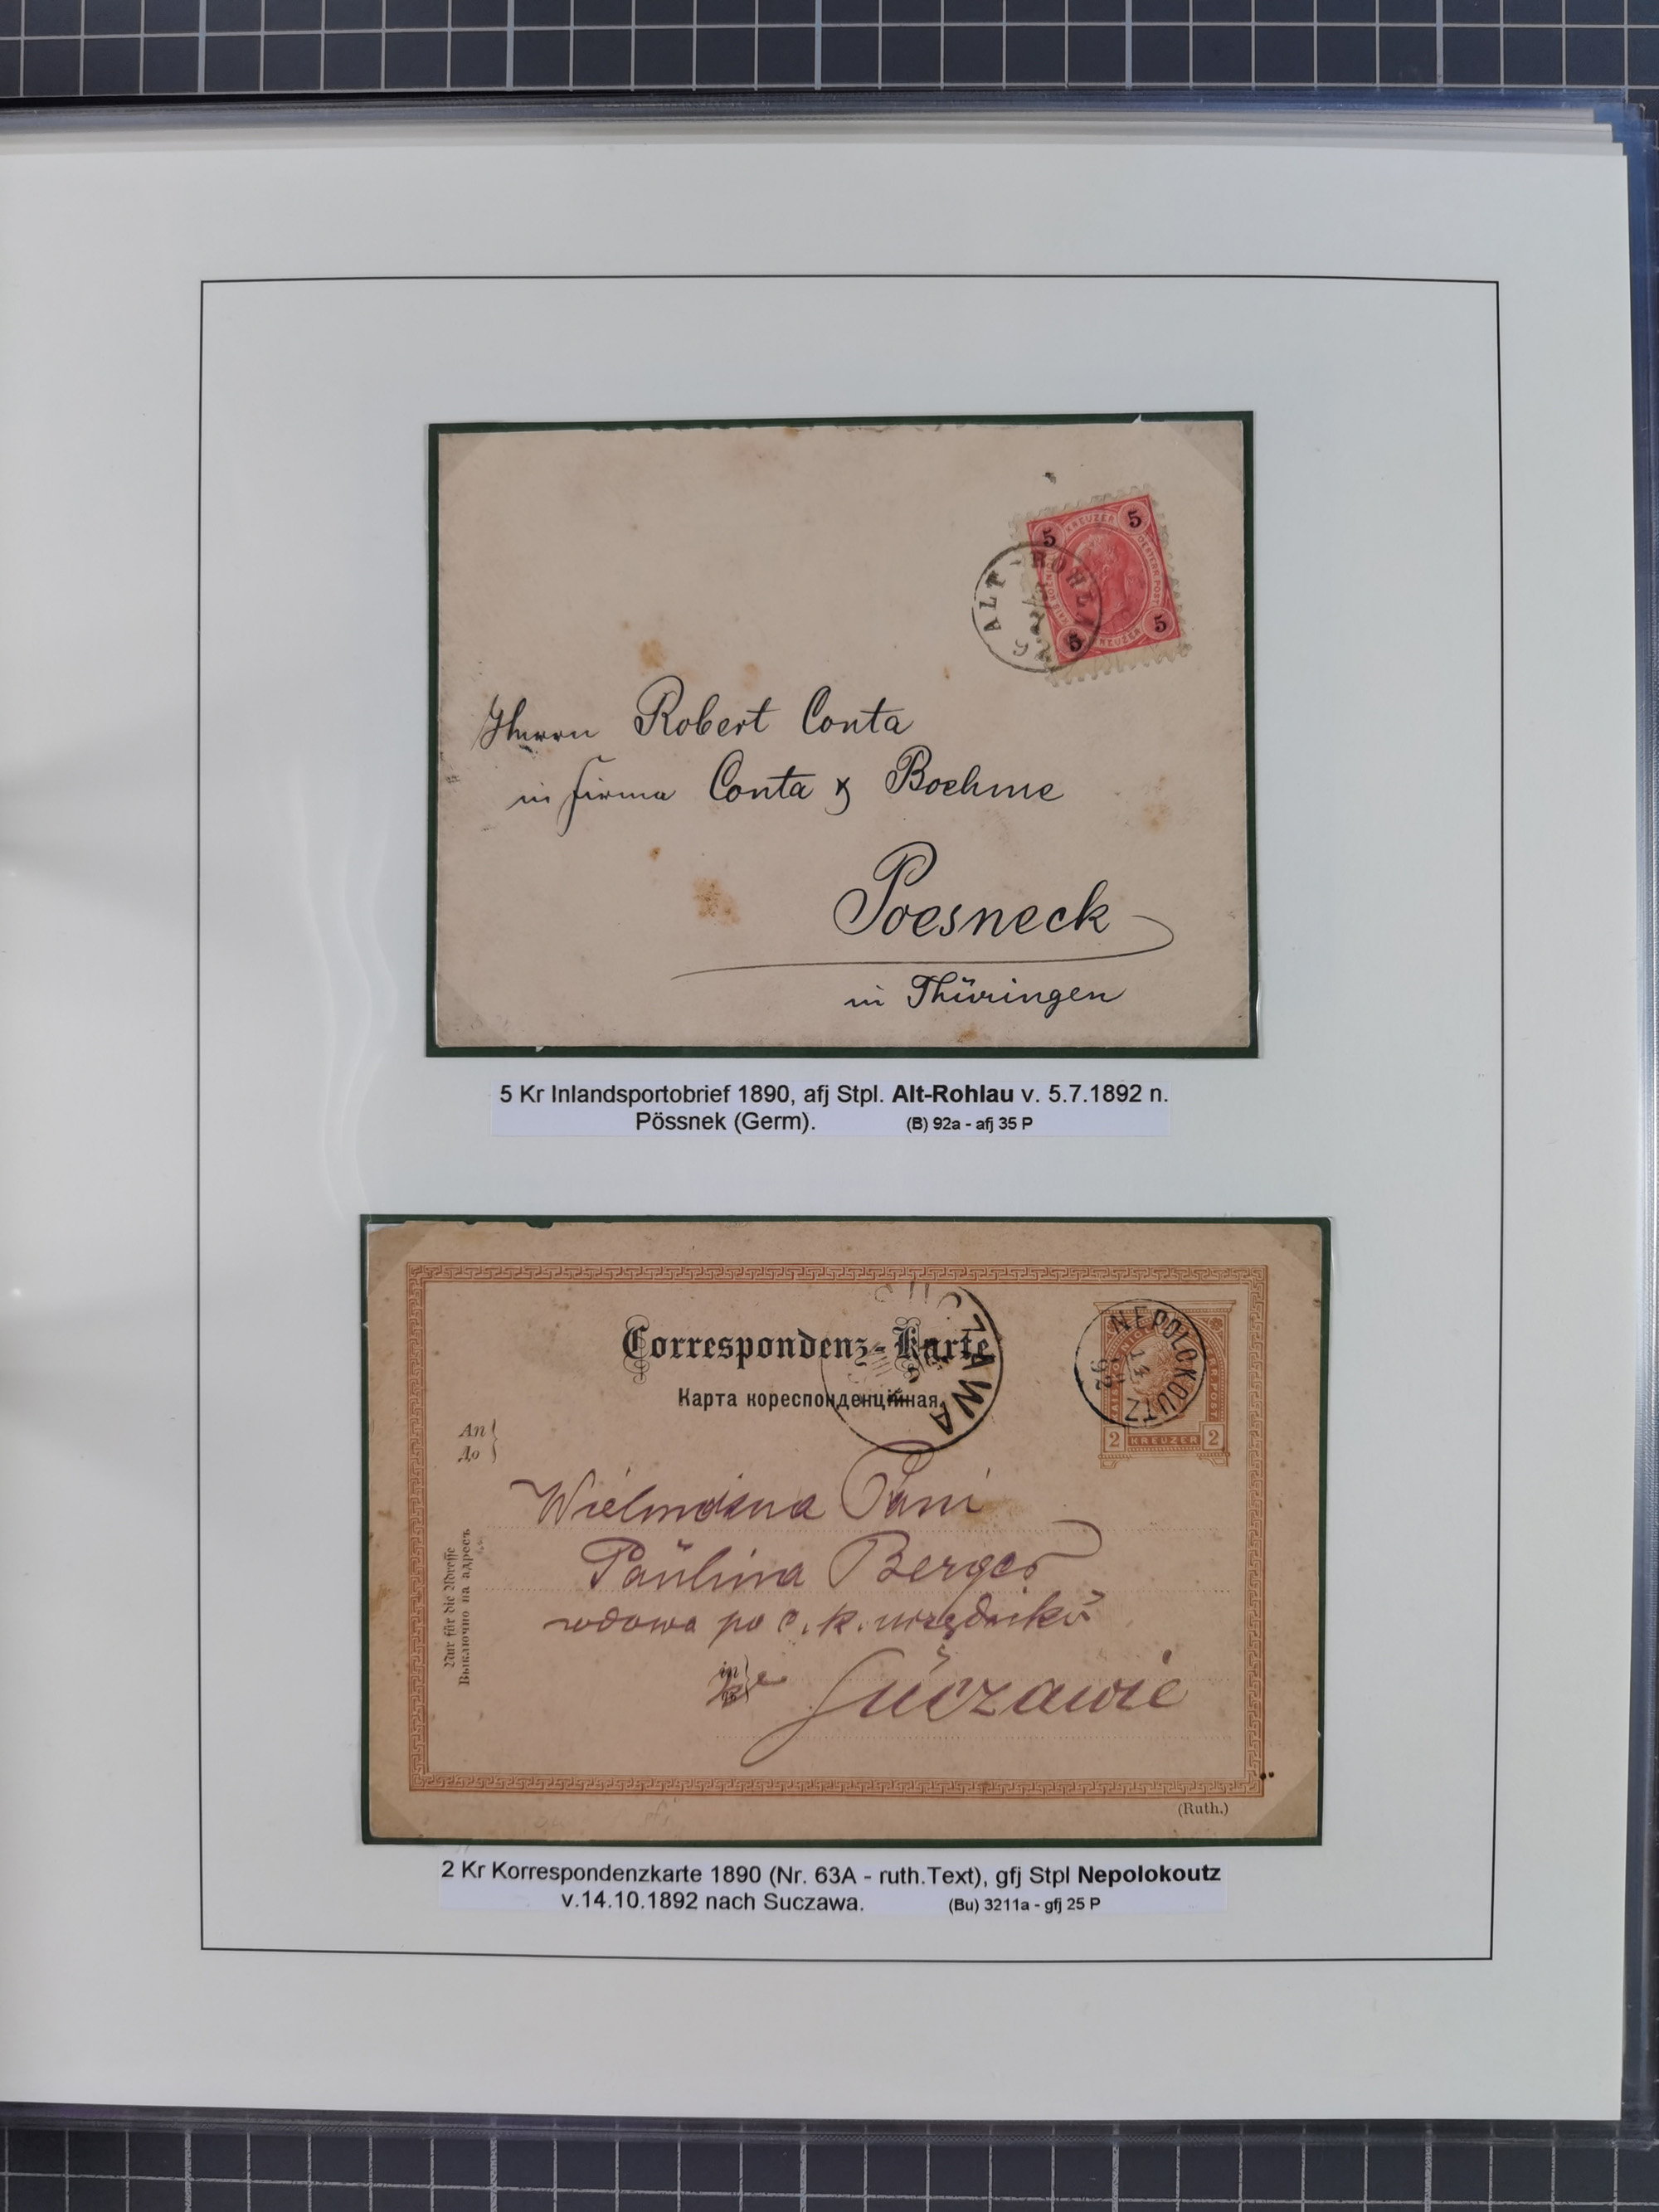 KREUZER
5 5
5 5
ALT-ROHL
Herrn Robert Conta
in Firma Conta & Boehme
Poesneck
in Thüringen
5 Kr Inlandsportobrief 1890, afj Stpl. Alt-Rohlau v. 5.7.1892 n.
Pössnek (Germ). (B) 92a - afj 35 P
Correspondenz-Karte
Карта кореспонденційная
NEPOLOKOUTZ
14
92
2 KREUZER 2
CZAWA
An
До
Nur für die Adresse
Выключно на адресъ
Wielmożna Pani
Paulina Berger
wdowa po c. k. urzędniku
in
we Suczawie
(Ruth.)
2 Kr Korrespondenzkarte 1890 (Nr. 63A - ruth.Text), gfj Stpl Nepolokoutz
v.14.10.1892 nach Suczawa. (Bu) 3211a - gfj 25 P